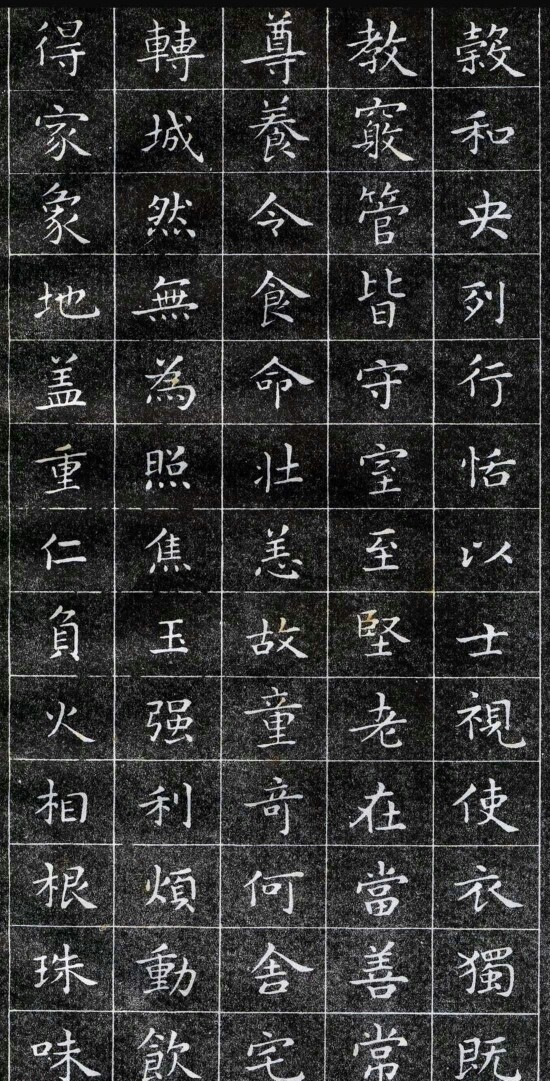 榖和央列行恬以士視使衣獨既
教窮管皆守室至堅老在當善常
尊養令食命壯恙故童奇何舍宅
轉城然無為照焦玉强利煩動飲
得家象地盖重仁負火相根珠味